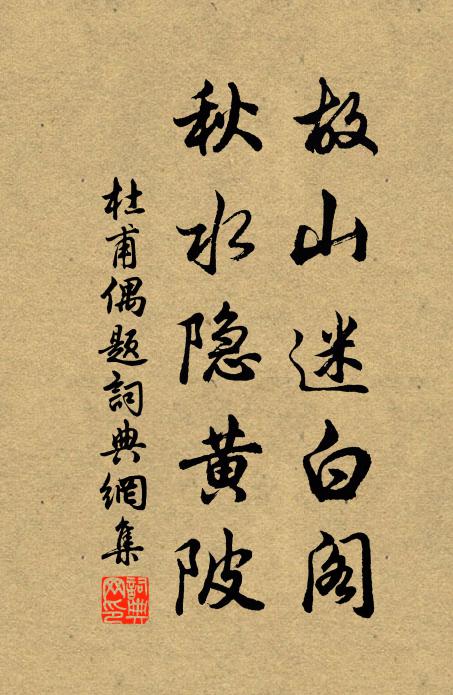 故山迷白阁
秋水隐黄陂
杜甫偶题詞典網集
詞典網印